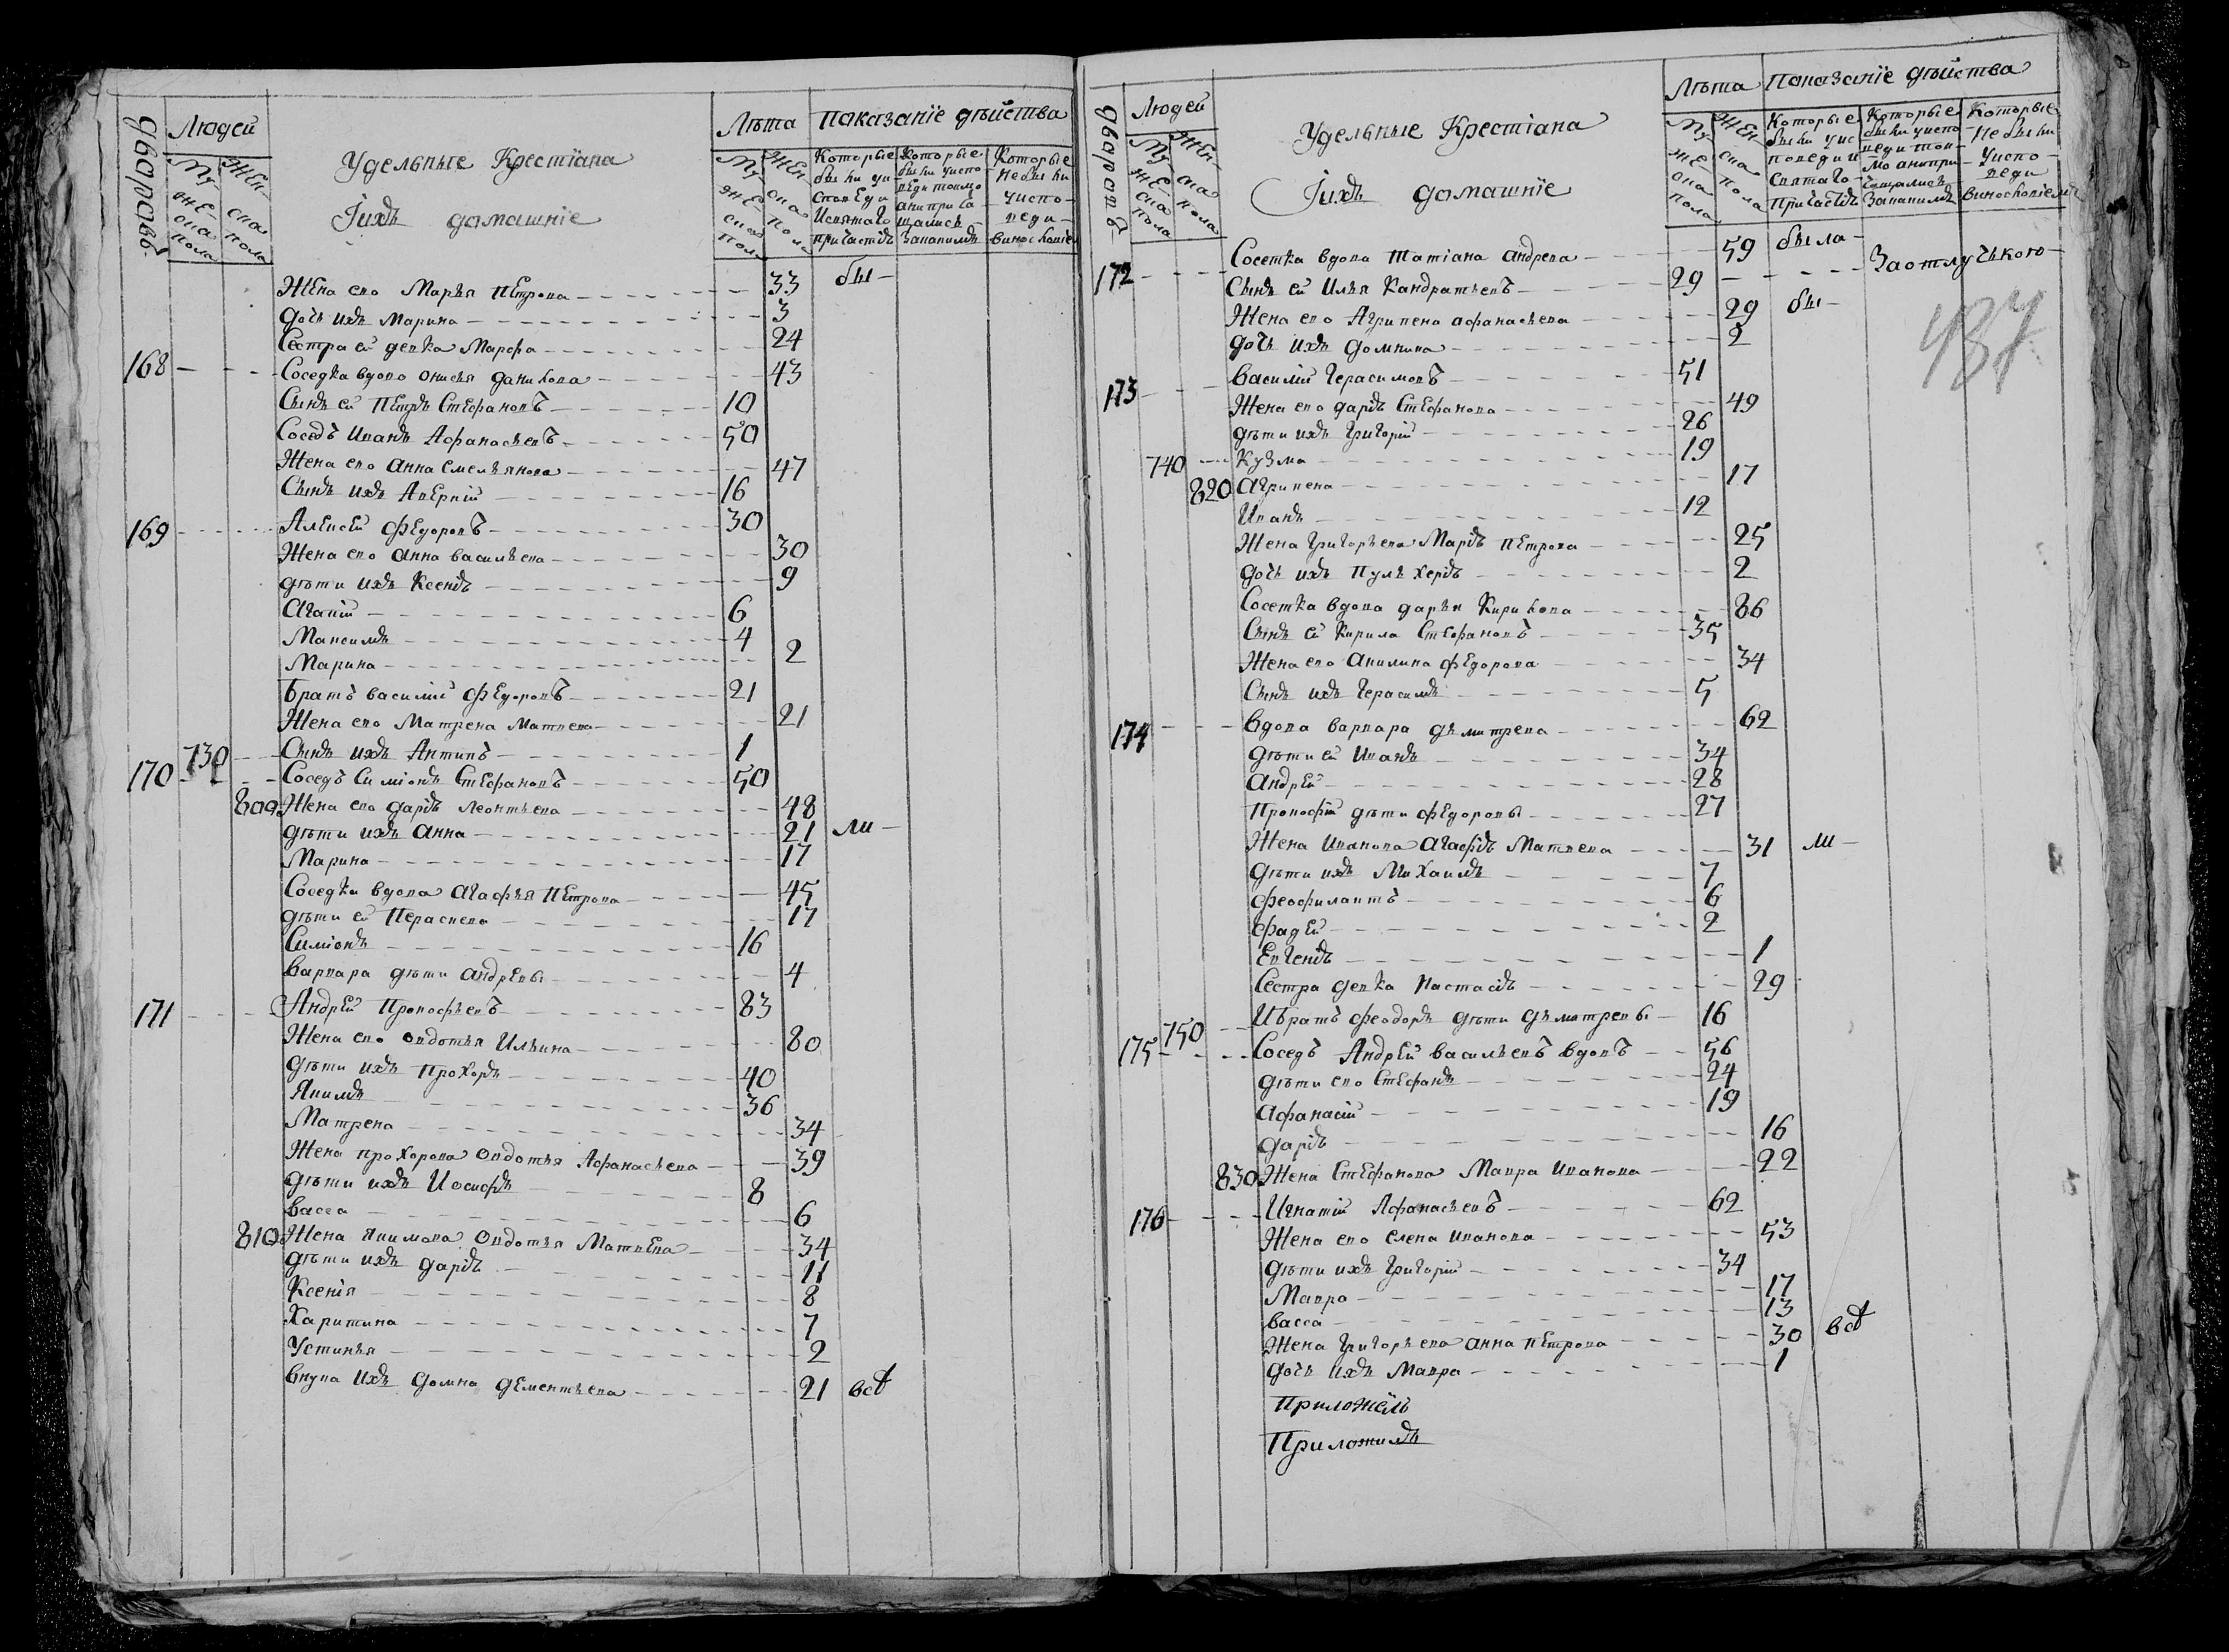 дворовъ
Людей
Муже-
ска
пола
Жен-
ска
пола
Удельные Крестіяна
Іихъ домашніе
Лѣта
Муже-
ска
пола
Жен-
ска
пола
показаніе дѣйства
Которые
были уи-
споведи
Исвятаго
причастія
Которые
были уиспо-
веди токмо
анипри ча-
щались
Заканимъ
Которые
небыли
уиспо-
веди
Жена ево Марья Петрова 33 бы-
дочь ихъ Марина 3
Сестра ей девка Марфа 24
168 Соседка вдова онисья данилова 43
Сынъ ей Петръ Стефановъ 10
Соседъ Иванъ Афанасьевъ 50
Жена ево анна Емельянова 47
Сынъ ихъ Аверкій 16
169 Алексей федоровъ 30
Жена ево анна васильева 30
дѣти ихъ Ксенія 9
Агапій 6
Максимъ 4
Марина 2
братъ василій федоровъ 21
Жена ево Матрена Матвева 21
730 Сынъ ихъ Антипъ 1
170 Соседъ Симіонъ Стефановъ 50
809 Жена ево дарія леонтьева 48
дѣти ихъ анна 21 ли-
Марина 17
Соседка вдова агафья Петрова 45
дѣти ей Пераскева 17
Симіонъ 16
варвара дѣти андревы 4
171 Андрей Прокофьевъ 83
Жена ево овдотья Ильина 80
дѣти ихъ Прохоръ 40
Якимъ 36
Матрена 34
Жена прохорова овдотья Афанасьева 39
дѣти ихъ Иосифъ 8
васса 6
810 Жена якимова овдотья Матвева 34
дѣти ихъ дарія 11
Ксенія 8
Харитина 7
Устинья 2
внука ихъ домна дементьева 21 всѣ
дворовъ
Людей
Муже-
ска
пола
Жен-
ска
пола
Удельные Крестіана
Іихъ домашніе
Лѣта
Муже-
ска
пола
Жен-
ска
пола
показаніе дѣйства
Которые
были уис
поведи и
святаго
причастія
Которые
были уиспо
веди ток-
мо анипри-
чащались
Заканимъ
Которые
небыли
уиспо-
веди
Сосетка вдова татіана андрева 59 была-
172 Сынъ ей Илья Кандратьевъ 29 Заотлучкою
Жена ево Агрипена афанасьева 29 бы-
дочь ихъ домнина 2
437
173 василій герасимовъ 51
Жена ево дарія Стефанова 49
дѣти ихъ григорій 26
740 Кузма 19
820 агрипена 17
Иванъ 12
Жена григорьева Марія петрова 25
дочь ихъ Пулхерія 2
Сосетка вдова дарья Кирилова 86
Сынъ ей Кирила Стефановъ 35
Жена ево акилина федорова 34
Сынъ ихъ герасимъ 5
174 вдова варвара дьмитрева 62
дѣти ей Иванъ 34
андрей 28
Прокофій дѣти федоровы 27
Жена иванова агафія Матвева 31 ли-
дѣти ихъ Михаилъ 7
феофилактъ 6
фадей 2
Евгенія 1
Сестра девка настасія 29
750 Ибратъ феодоръ дѣти дьмитревы 16
175 Соседъ Андрей васильевъ вдовъ 56
дѣти ево Стефанъ 24
афанасій 19
дарія 16
830 Жена Стефанова Мавра иванова 22
176 Игнатій Афанасьевъ 62
Жена ево елена иванова 53
дѣти ихъ григорій 34
Мавра 17
васса 13
Жена григорьева анна петрова 30 всѣ
дочь ихъ Мавра 1